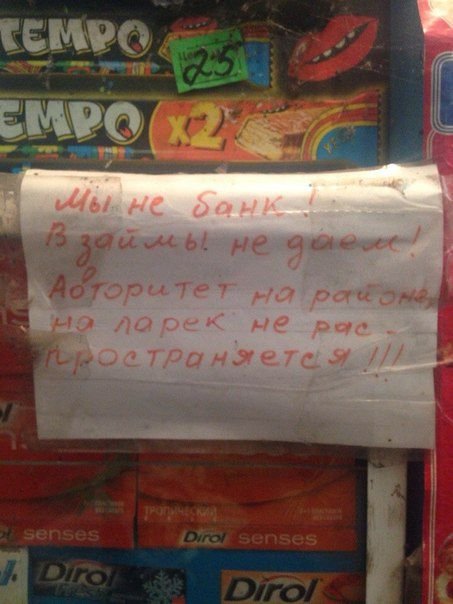 TEMPO
25
EMPO
x2
Мы не банк!
Взаймы не даем!
Авторитет на районе,
на ларек не рас-
пространяется!!!
ol
ТРОПИЧЕСКИЙ
senses
Dirol senses
Dirol
Dirol